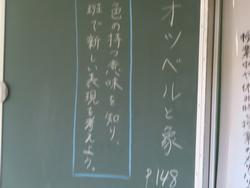 オツベルと象
P148
色の持つ意味を知り、
班で新しい表現を考えよう。